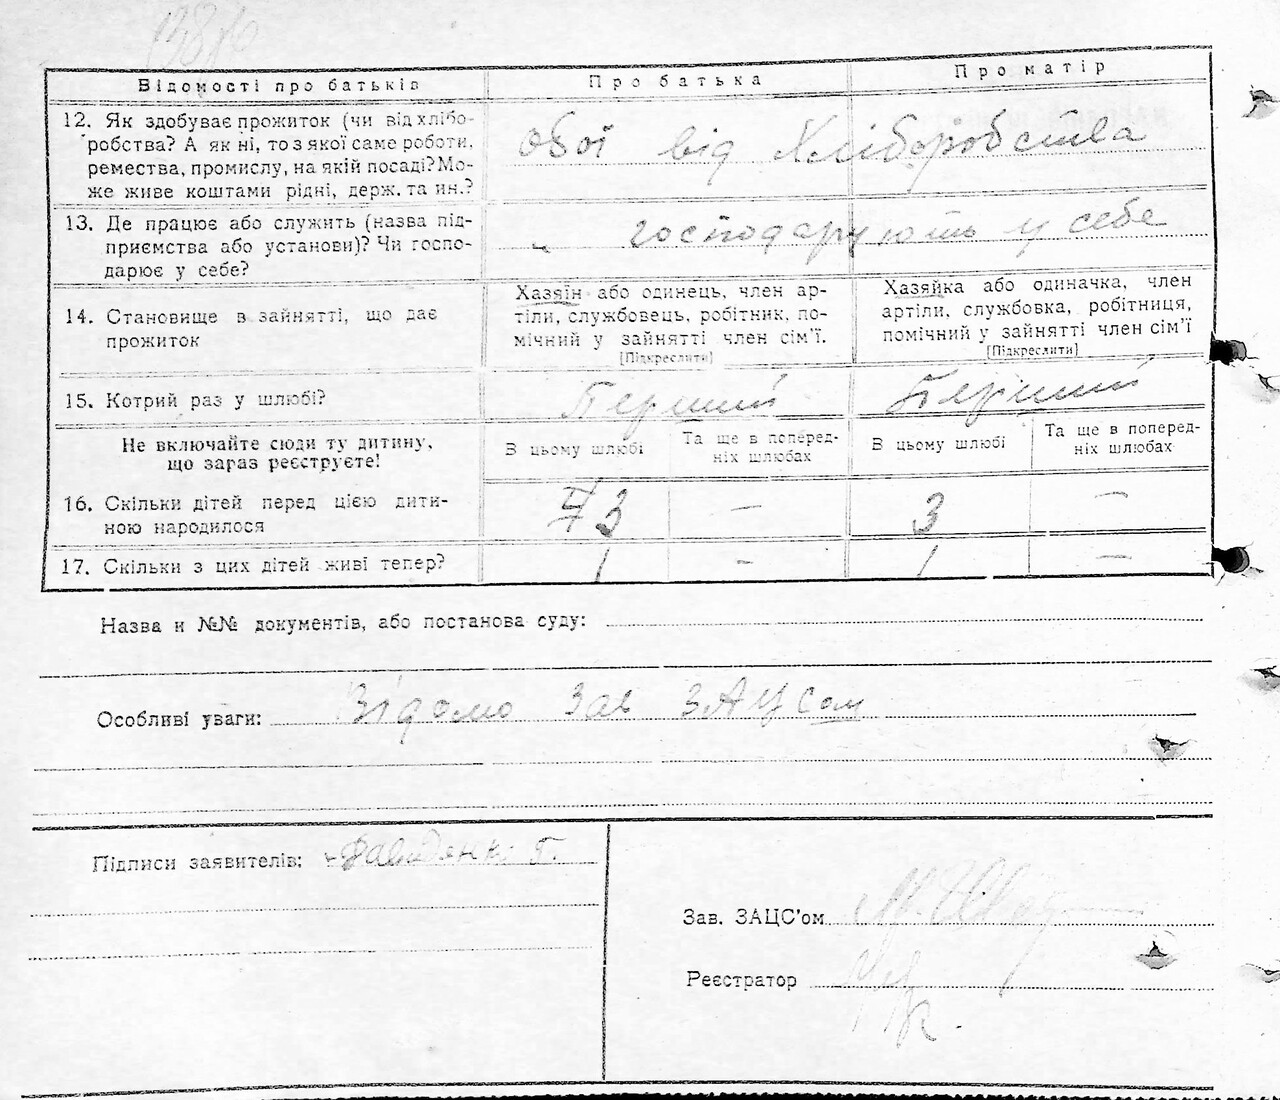 Відомості про батьків
Про батька
Про матір
12. Як здобуває прожиток (чи від хлібо-
робства? А як ні, то з якої саме роботи,
ремества, промислу, на якій посаді? Мо-
же живе коштами рідні, держ. та ин.?
обої від Хліборобства
13. Де працює або служить (назва під-
приємства або установи)? Чи госпо-
дарює у себе?
„ господарують у себе
14. Становище в зайнятті, що дає
прожиток
Хазяїн або одинець, член ар-
тіли, службовець, робітник, по-
мічний у зайнятті член сім'ї.
[Підкреслити]
Хазяйка або одиначка, член
артіли, службовка, робітниця,
помічний у зайнятті член сім'ї
[Підкреслити]
15. Котрий раз у шлюбі?
Перший
Перший
Не включайте сюди ту дитину,
що зараз реєструєте!
В цьому шлюбі
Та ще в поперед-
ніх шлюбах
В цьому шлюбі
Та ще в поперед-
ніх шлюбах
16. Скільки дітей перед цією дити-
ною народилося
3 — 3 —
17. Скільки з цих дітей живі тепер?
1 — 1 —
Назва и №№ документів, або постанова суду:
Особливі уваги: Відомо Зав ЗАЦСом
Підписи заявителів:
Зав. ЗАЦС'ом
Реєстратор